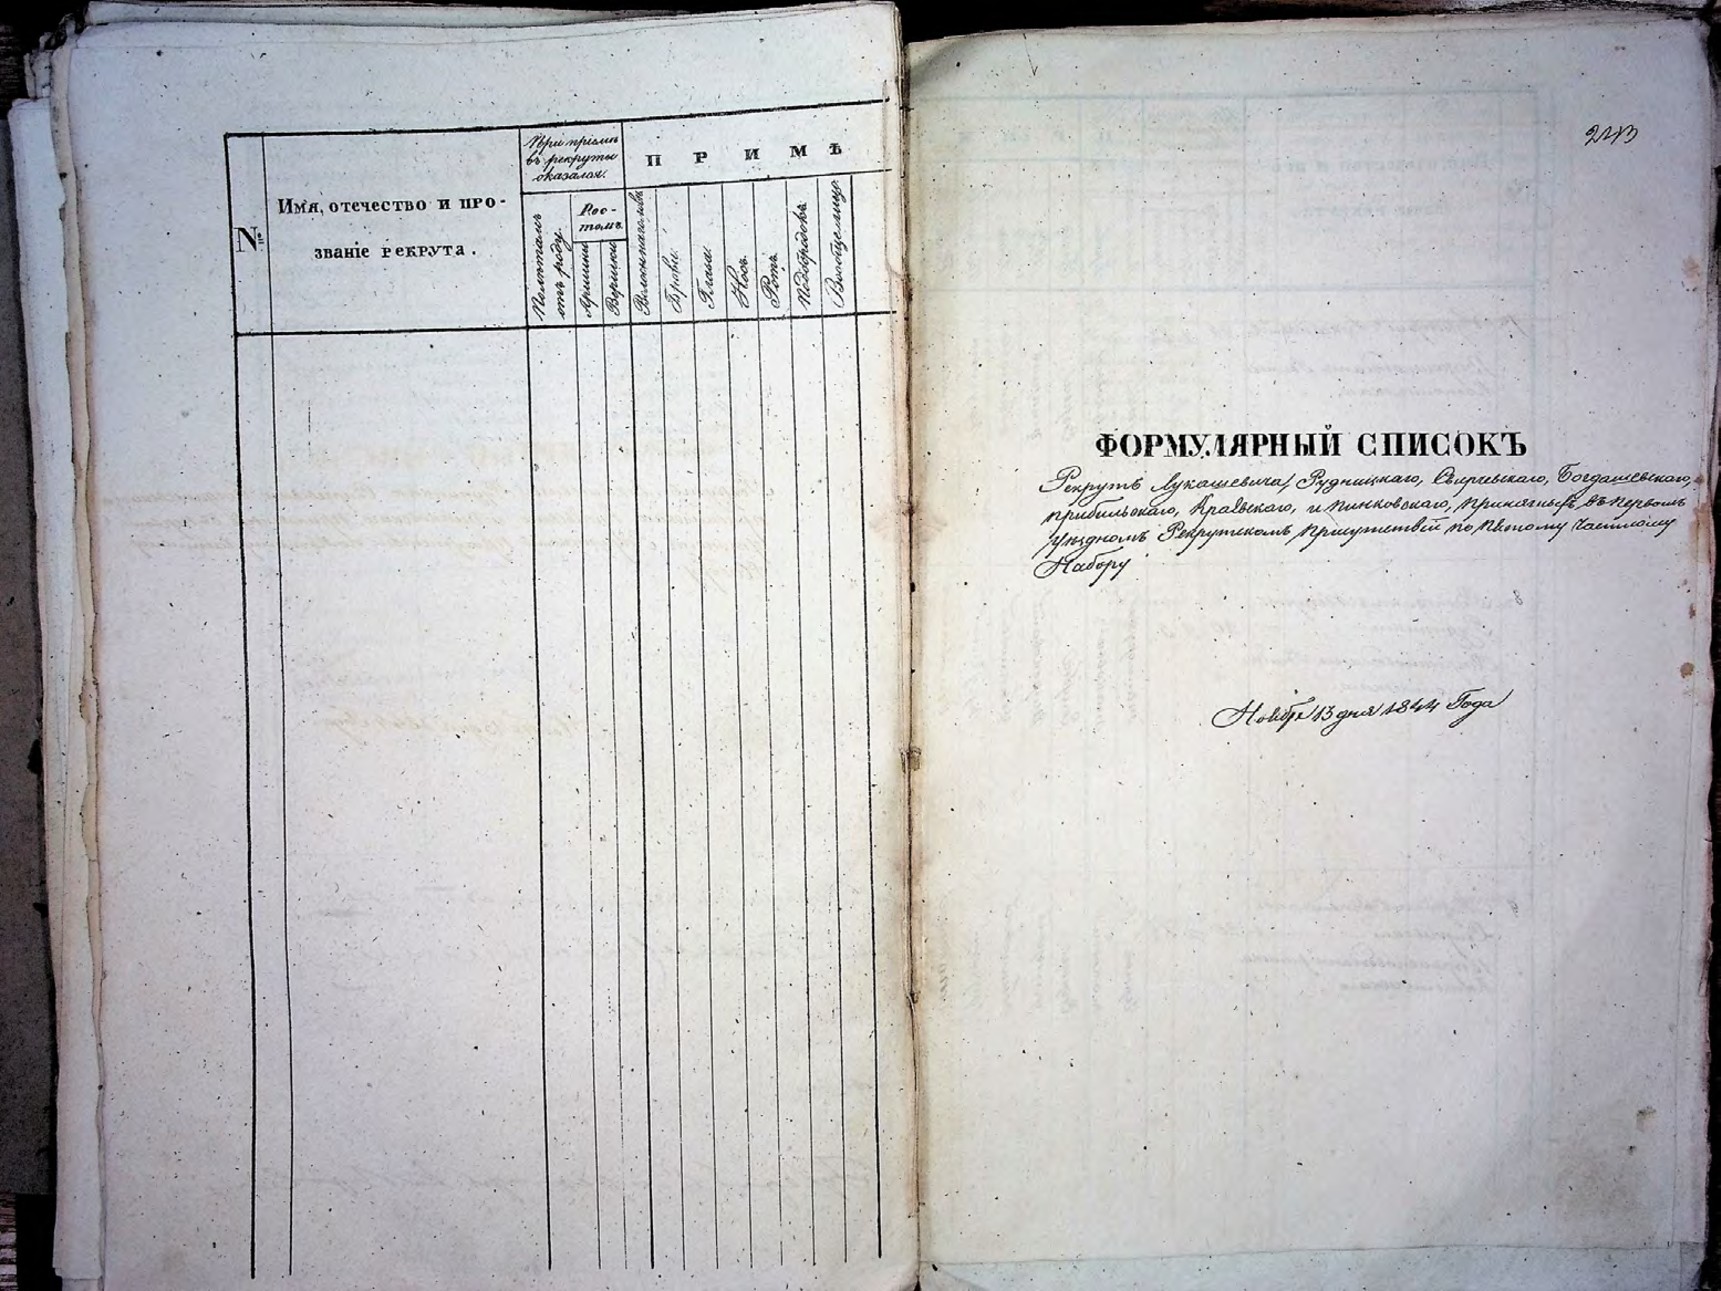 №
Имя, отечество и про-
званіе рекрута.
При пріемѣ
въ рекруты
оказался.
Полѣтамъ
отъ роду.
Рос-
томъ.
Аршины
Вершки
П Р И М Ѣ
Волосы на головѣ
Брови.
Глаза.
Носъ.
Ротъ.
Подбородокъ.
Вообще лице.
243
ФОРМУЛЯРНЫЙ СПИСОКЪ
Рекрутъ Лукашевича, Рудницкаго, Свирчевскаго, Богдашевскаго,
прибыльскаго, Краевскаго, и пинковскаго, принятыхъ въ первомъ
уѣздномъ Рекрутскомъ присутствіи по пятому частному
Набору
Ноября 13 дня 1844 Года